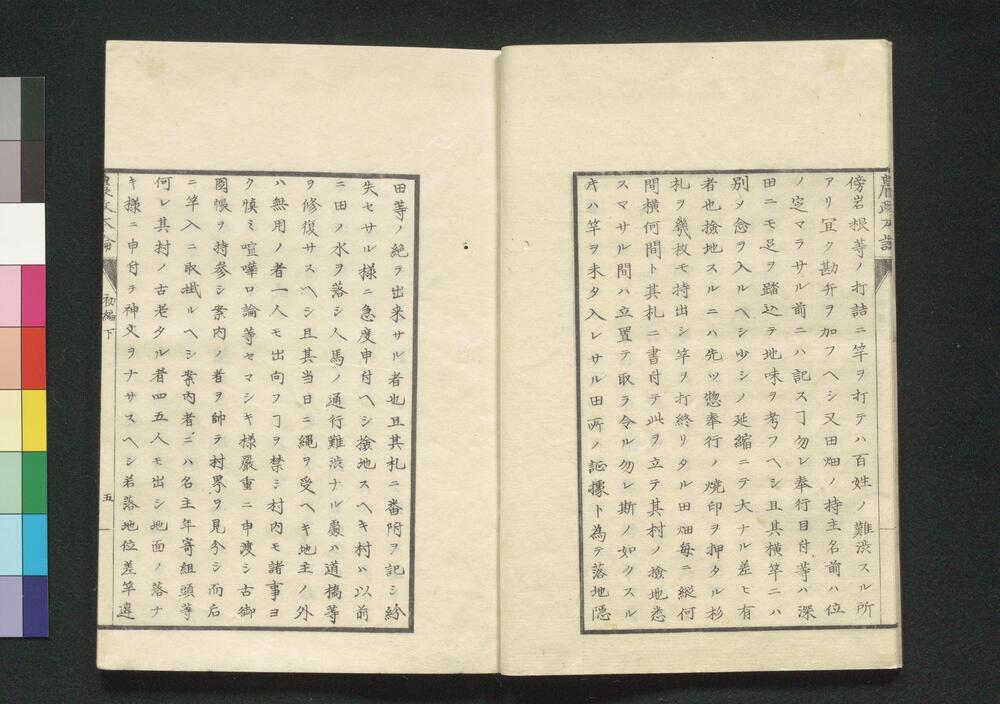 農政本論
傍岩根等ノ打詰ニ竿ヲ打テハ百姓ノ難渋スル所
アリ冝ク勘弁ヲ加フヘシ又田畑ノ持主名前ハ位
ノ定マラサル前ニハ記スヿ勿レ奉行目付等ハ深
田ニモ足ヲ踏込テ地味ヲ考フヘシ且其横竿ニハ
別メ念ヲ入ルヘシ少シノ延縮ニテ大ナル差ヒ有
者也撿地スルニハ先ツ惣奉行ノ焼印ヲ押タル杉
札ヲ幾枚モ持出シ竿ヲ打終リタル田畑毎ニ縦何
間横何間ト其札ニ書付テ此ヲ立テ其村ノ撿地悉
スマサル間ハ立置テ取ラ令ル勿レ斯ノ如クスル
キハ竿ヲ未タ入レサル田所ノ証攄ト為テ落地隠
田等ノ絶ヲ出来サル者也且其札ニ番附ヲ記シ紛
失セサル様ニ急度申付ヘシ撿地スヘキ村ハ以前
ニ田ノ水ヲ落シ人馬ノ通行難渋ナル處ハ道橋等
ヲ修復サスヘシ且其当日ニ縄ヲ受ヘキ地主ノ外
ハ無用ノ者一人モ出向フヿヲ禁シ村内モ諸事ヨ
ク慎ミ喧嘩口論等セマシキ様嚴重ニ申渡シ古御
圖帳ヲ持参シ案内ノ者ヲ師ヲ村界ヲ見分シ而后
ニ竿入ニ取掛ルヘシ案内者ニハ名主年寄組頭等
何レ其村ノ古老タル者四五人モ出シ地面ノ落ナ
キ様ニ申付ヲ神文ヲナサスヘシ若落地位差竿違
農政本論
初編下
五